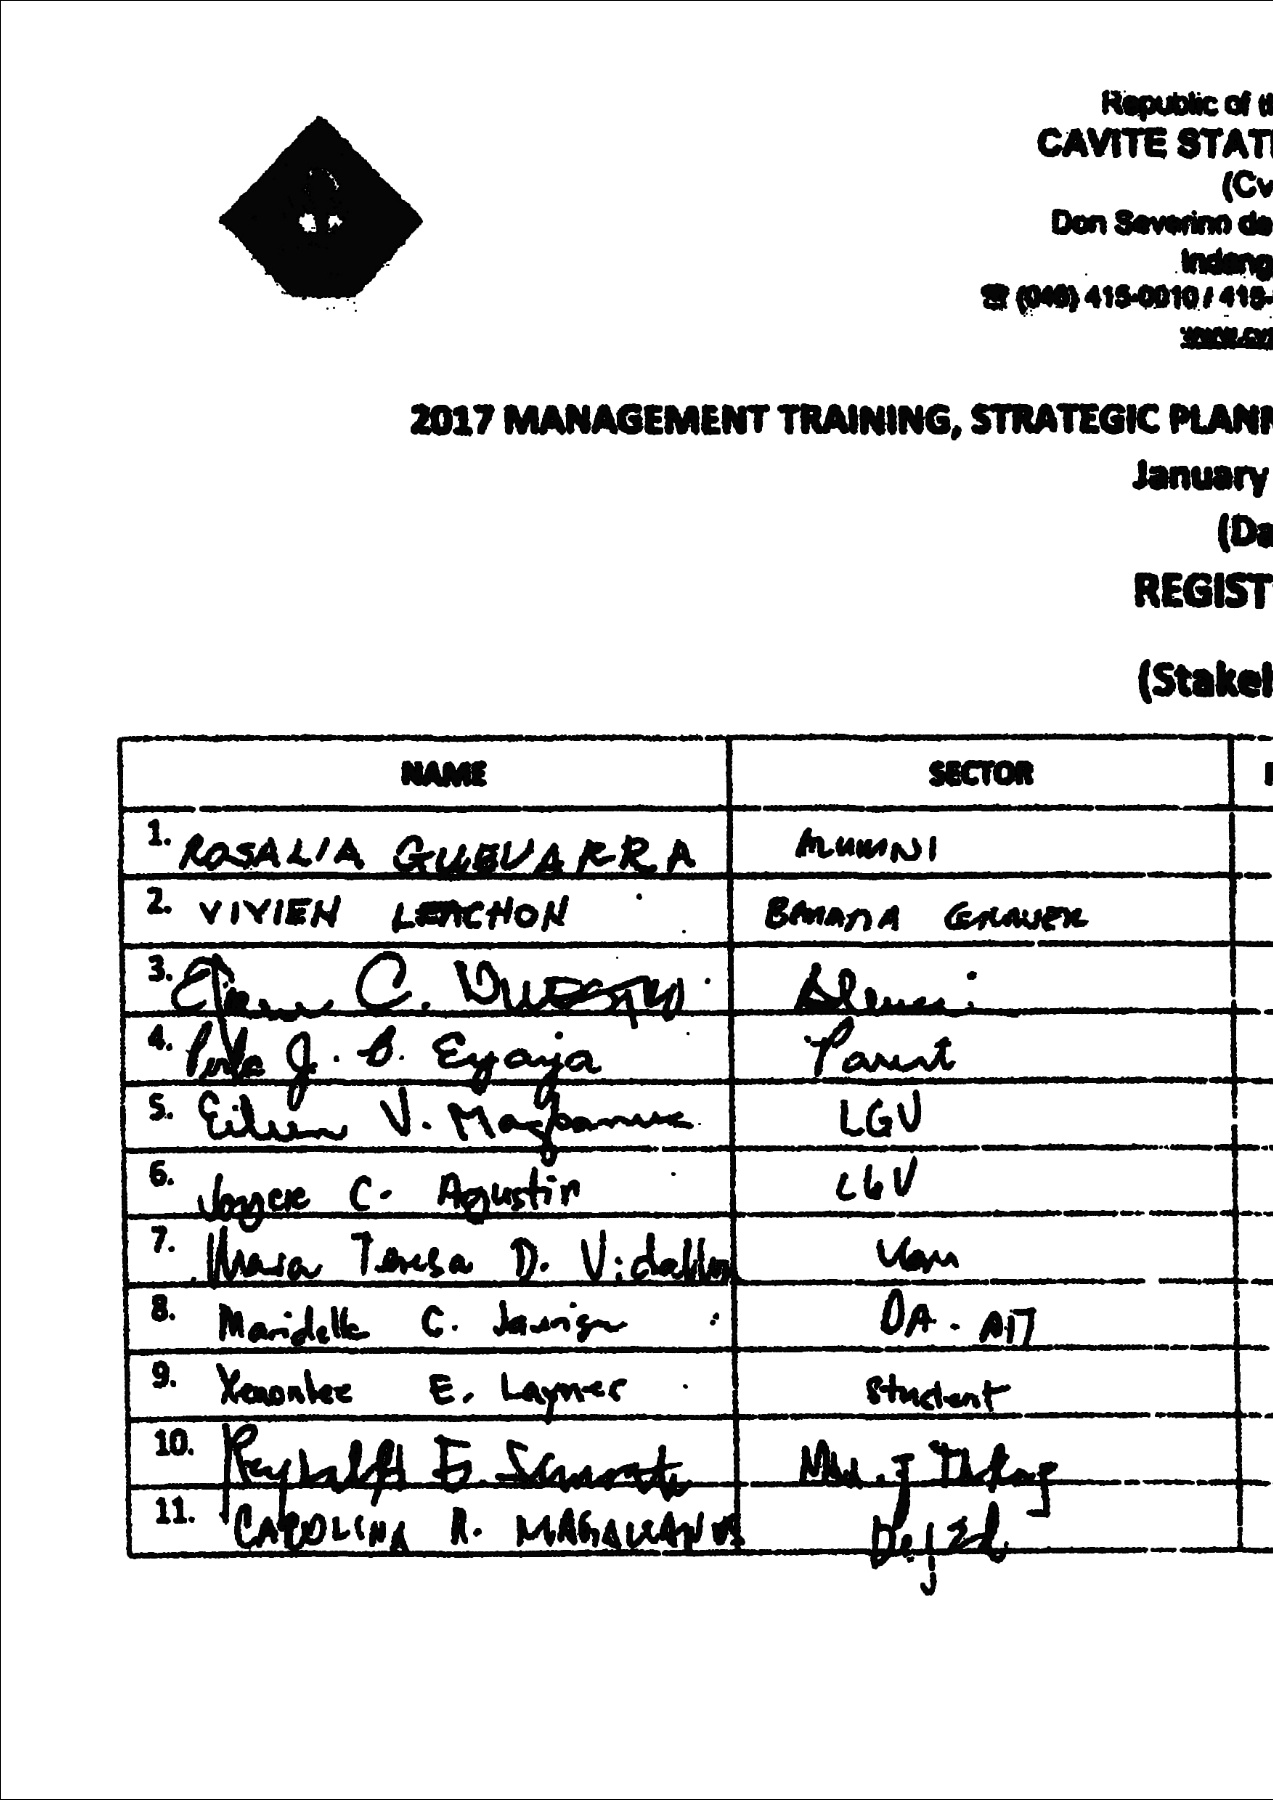 Republic of th
CAVITE STATE
(Cv
Don Severino de
Indang
☎ (046) 415-0010 / 415-
www.cv
2017 MANAGEMENT TRAINING, STRATEGIC PLANN
January
(Da
REGIST
(Stakeh
NAME SECTOR
1. ROSALIA GUEVARRA ALUMNI
2. VIVIEN LEACHON BANANA GROWER
3. C. Alumni
4. Perla J. B. Eyaya Parent
5. Eileen V. LGU
6. Joyce C. Agustin LGU
7. Maria Teresa D.
8. Maridelle C. DA - ATI
9. E. Laynes Student
10.
11. CAROLINA R. MAGALLANES DepEd